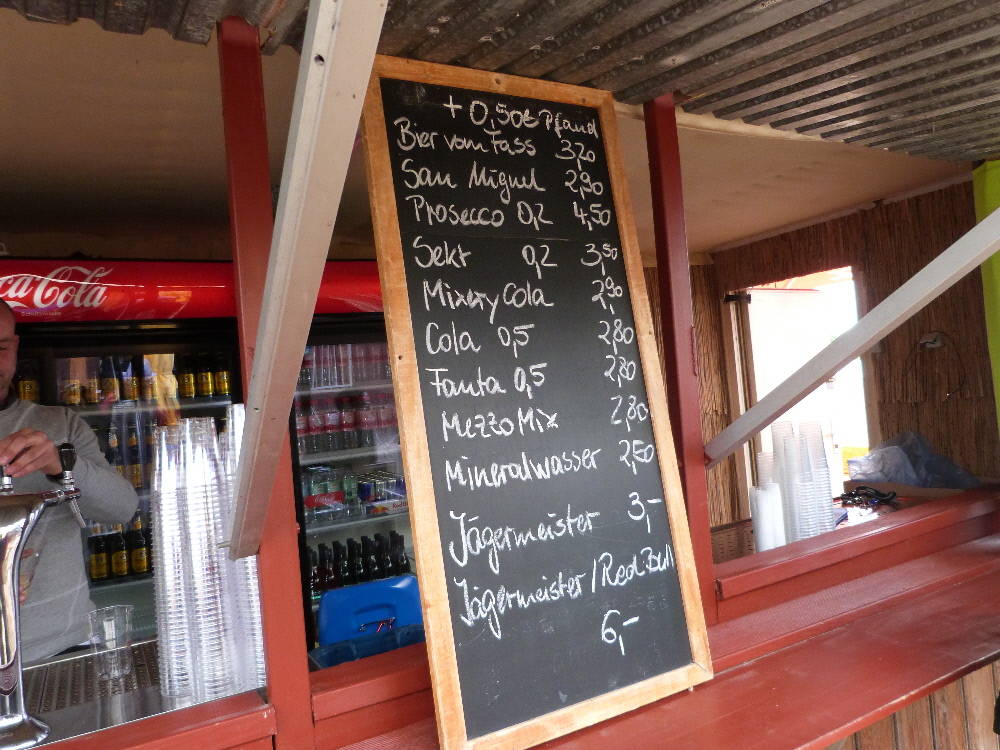 Coca-Cola
+ 0,50€ Pfand
Bier vom Fass 3,20
San Miguel 2,90
Prosecco 0,2 4,50
Sekt 0,2 3,50
Mixery Cola 2,90
Cola 0,5 2,80
Fanta 0,5 2,80
Mezzo Mix 2,80
Mineralwasser 2,50
Jägermeister 3,-
Jägermeister/Red Bull
6,-